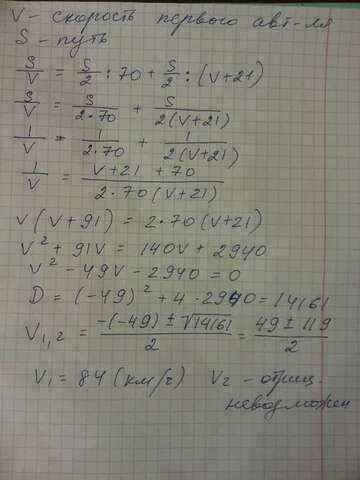 V - скорость первого авт-ля
S - путь
S/V = S/2 : 70 + S/2 : (V+21)
S/V = S/(2·70) + S/(2(V+21))
1/V = 1/(2·70) + 1/(2(V+21))
1/V = (V+21+70)/(2·70(V+21))
V(V+91) = 2·70(V+21)
V² + 91V = 140V + 2940
V² - 49V - 2940 = 0
D = (-49)² + 4·2940 = 14161
V₁,₂ = (-(-49) ± √14161)/2 = (49 ± 119)/2
V₁ = 84 (км/г) V₂ - отриц.
невозможен